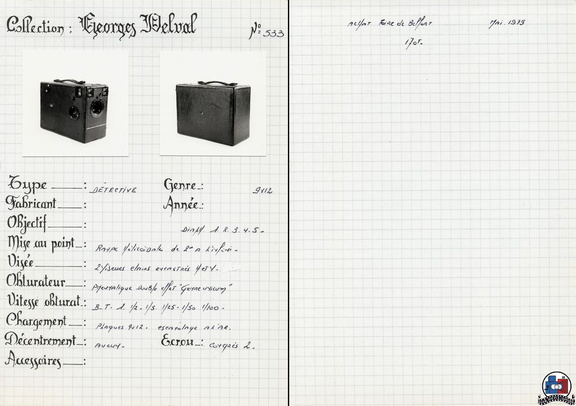 Collection : Georges Delval N° 533
Type : DÉTECTIVE Genre : 9x12
Fabricant : Année :
Objectif : Diaph 1. 2. 3. 4. 5.
Mise au point : Rampe hélicoïdale de 2m à l'infini.
Visée : 2 viseurs clairs encastrés H et V.
Obturateur : Pneumatique double effet
Vitesse obturat. : B. T. 1. 1/2. 1/5. 1/25. 1/50 1/100.
Chargement : Plaques 9x12. escamotage
Décentrement : Aucun. Ecrou : Congrès 2.
Accessoires :
Achat Foire de Belfort Mai. 1975
170F.